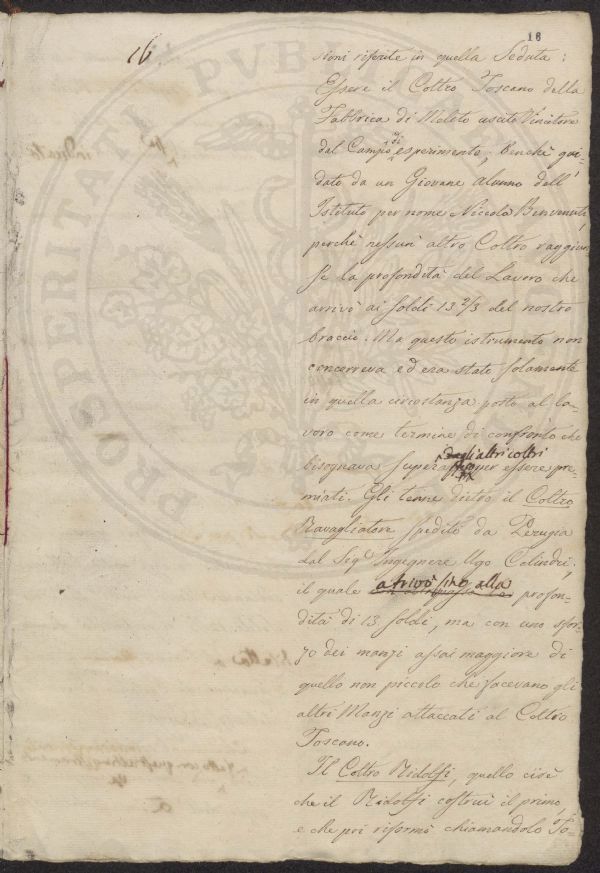 18
16.
sioni riferite in quella Seduta:
Essere il Coltro Toscano della
Fabbrica di Meleto uscito Vincitore
dal Campo di esperimento, benchè gui-
dato da un Giovane alunno dell'
Istituto per nome Niccola Benvenuti,
perchè nessun' altro Coltro raggiun-
se la profondità del Lavoro che
arrivò ai soldi 13 2/3 del nostro
braccio. Ma questo istrumento non
concorreva ed era stato solamente
in quella circostanza posto al la-
voro come termine di confronto che
dagli altri coltri
bisognava per essere pre-
miati. Gli tenne dietro il Coltro
Ravagliatore spedito da Perugia
dal Sigr Ingegnere Ugo Calindri,
il quale arrivò sino alla profon-
dità di 13 soldi, ma con uno sfor-
zo dei manzi assai maggiore di
quello non piccolo che facevano gli
altri Manzi attaccati al Coltro
Toscano.
Il Coltro Ridolfi, quello cioè
che il Ridolfi costruì il primo,
e che poi riformò chiamandolo To-